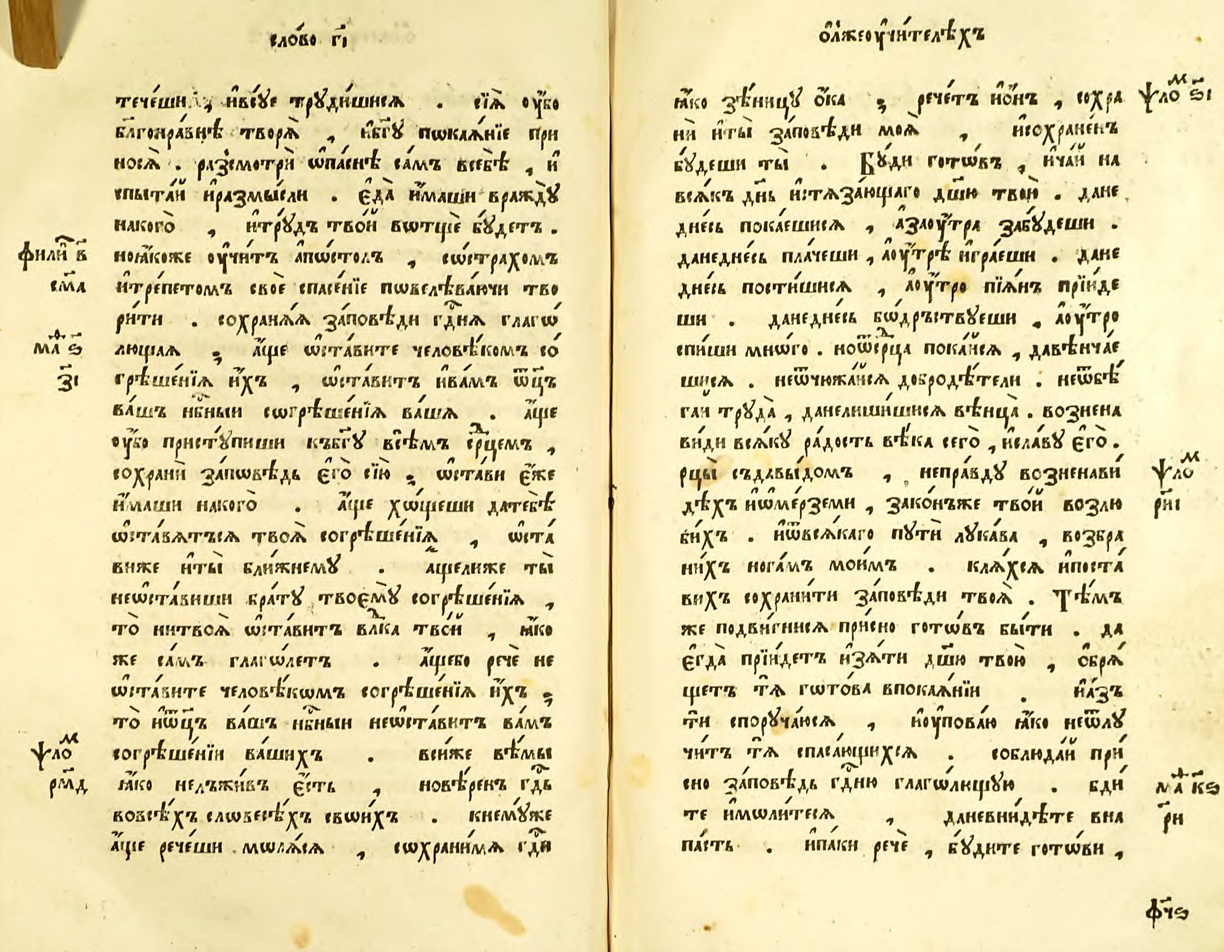 сло́во г҃і
тече́ши , и҆всꙋе трꙋ́дишисѧ . сїѧ̀ оу҆́бо
бл҃гонра́внѣ творѧ̀ , и҆бг҃ꙋ пѡкаѧ́нїе при
носѧ̀ . разсмотрѝ ѡ҆па́снѣ са́мъ всебѣ̀ , и҆
спыта́й и҆размы́сли . є҆да̀ и҆́маши враждꙋ̀
накого̀ , и҆трꙋ́дъ тво́й вѡтщѐ бꙋ́детъ .
фили в҃
ноꙗ҆́коже оу҆чи́тъ а҆пѡ́столъ , сѡстра́хомъ
сма
и҆тре́петомъ своѐ спасе́нїе пѡвелѣва́ючи тво
ри́ти . сохранѧ́ѧ за́повѣди гд҇нѧ глаго́
ма ѕ҃
лющаѧ ; а҆́ще ѡ҆ста́вите человѣ́комъ со
з҃і
грѣше́нїѧ и҆́хъ , ѡ҆ста́витъ и҆ва́мъ ѿц҃ъ
ва́шъ нбⷭ҇ныи сѡгрѣше́нїѧ ва́шѧ . а҆́ще
оу҆́бо пристꙋ́пиши къбг҃ꙋ всѣ́мъ срⷣцемъ ,
сохранѝ за́пѡвѣдь є҆го̀ сїю̀ ; ѡ҆ста́ви є҆́же
и҆́маши накого̀ . а҆́ще хо́щеши датебѣ̀
ѡ҆ста́вѧтъсѧ твоѧ̀ согрѣше́нїѧ , ѡ҆ста
виже и҆ты̀ бли́жнемꙋ . а҆щелиже ты̀
неѡ҆ста́виши бра́тꙋ твоємꙋ̀ согрѣше́нїѧ ,
то̀ нитвоѧ̀ ѡ҆ста́витъ влⷣка тво́й , ꙗ҆́ко
же са́мъ глаго́летъ . а҆́щебо речѐ не
ѡ҆ста́вите человѣ́кѡмъ согрѣше́нїѧ и҆́хъ ;
то̀ и҆ѿц҃ъ ва́шъ нбⷭ҇ныи неѡ҆ста́витъ ва́мъ
ѱло м
согрѣше́нїи ва́шихъ . вси́же вѣ́мы
рмд
ꙗ҆́ко нелъжи́въ є҆́сть , новѣ́ренъ гдⷭ҇ь
вовсѣ́хъ словесѣ́хъ свои́хъ . кнемꙋ́же
а҆́ще рече́ши мѡлѧ́сѧ , сѡхрани́мѧ гдⷭ҇и
ѡ҆лжеоу҆чи́телѣхъ
ꙗ҆́ко зѣ́ницꙋ о҆́ка ; рече́тъ и҆о́нъ , сохра
ѱло м ѕ҃і
нѝ и҆ты̀ за́повѣди моѧ̀ , и҆сохране́нъ
бꙋ́деши ты̀ . Бꙋ́ди гото́въ , и҆ча́й на
всѧ́къ дн҃ь и҆стѧза́ющаго дш҃ꙋ твою̀ . дане
дне́сь пока́ешисѧ , а҆заоу҆́тра забꙋ́деши .
данедне́сь пла́чеши , аоу҆́трѣ и҆гра́еши . дане
дне́сь пости́шисѧ , аоу҆́тро пїѧ́нъ прїи́де
ши . данедне́сь бѡ́дрьствꙋеши , аоу҆́тро
спи́ши мно́го . ноѿсрⷣца пока́йсѧ , давѣнча́е
шисѧ . неѿчюжа́йсѧ добродѣ́тели . неѿбѣ
га́й трꙋда̀ , данелиши́шисѧ вѣнца̀ . возне́на
види всѧ́кꙋ ра́дость вѣ́ка сего̀ , и҆сла́вꙋ є҆го̀ .
рцы̀ съдавы́домъ , непра́вдꙋ возненави́
ѱло м
дѣхъ и҆ѡме́рземи , зако́нъже тво́й возлю
риі
би́хъ . и҆ѿвсѧ́каго пꙋтѝ лꙋка́ва , возбра
ни́хъ нога́мъ мои́мъ . клѧ́хсѧ и҆поста́
вихъ сохрани́ти за́повѣди твоѧ̀ . Тѣ́мъ
же подви́гнисѧ при́сно гото́въ бы́ти . да
є҆гда̀ прїи́детъ и҆зѧ́ти дш҃ꙋ твою̀ , ѡ҆брѧ́
щетъ тѧ̀ гѡто́ва впокаѧ́нїи . и҆а҆́зъ
ти̑ спорꙋча́юсѧ , и҆оу҆пова́ю ꙗ҆́ко неѿлꙋ
чи́тъ тѧ̀ спаса́ющихсѧ . соблюда́й при́
сно за́повѣдь гдⷭ҇ню глаго́лющꙋю . бди́
ма кѕ
те и҆моли́тесѧ , даневни́дѣте вна
ри
па́сть . и҆па́ки речѐ , бꙋ́дите гото́ви ,
фчѕ